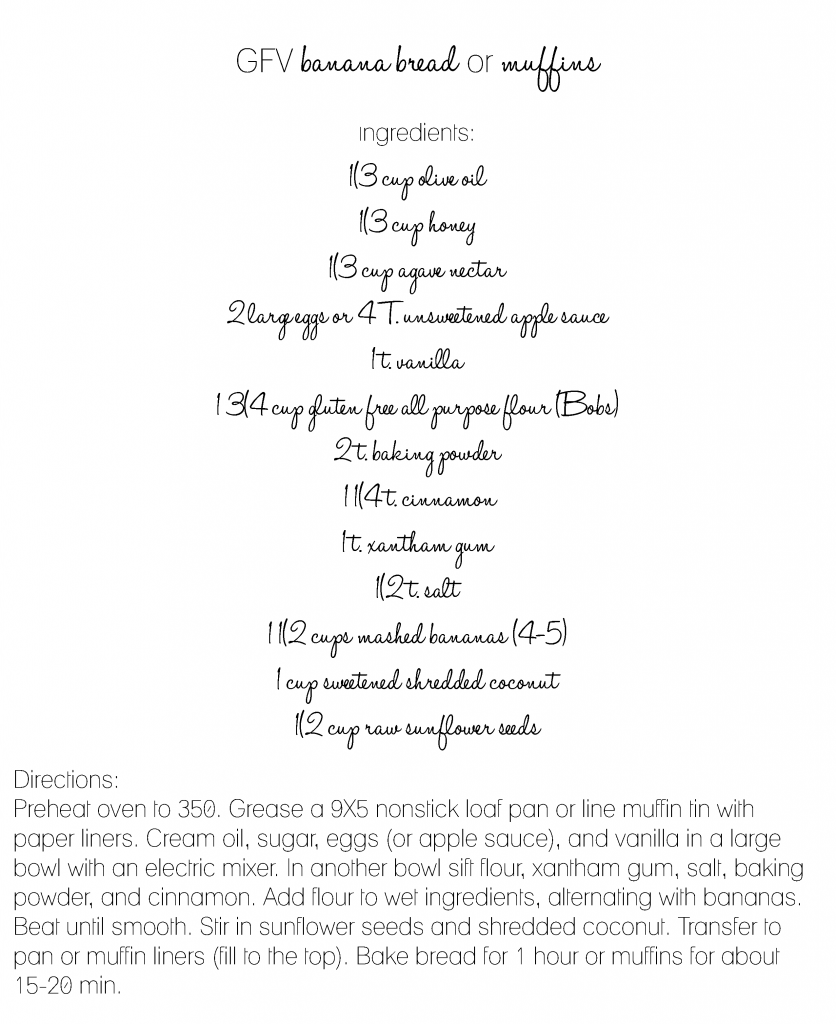 GFV banana bread or muffins
Ingredients:
1/3 cup olive oil
1/3 cup honey
1/3 cup agave nectar
2 large eggs or 4 T. unsweetened apple sauce
1 t. vanilla
1 3/4 cup gluten free all purpose flour (Bobs)
2 t. baking powder
1 1/4 t. cinnamon
1 t. xantham gum
1/2 t. salt
1 1/2 cups mashed bananas (4-5)
1 cup sweetened shredded coconut
1/2 cup raw sunflower seeds
Directions:
Preheat oven to 350. Grease a 9X5 nonstick loaf pan or line muffin tin with
paper liners. Cream oil, sugar, eggs (or apple sauce), and vanilla in a large
bowl with an electric mixer. In another bowl sift flour, xantham gum, salt, baking
powder, and cinnamon. Add flour to wet ingredients, alternating with bananas.
Beat until smooth. Stir in sunflower seeds and shredded coconut. Transfer to
pan or muffin liners (fill to the top). Bake bread for 1 hour or muffins for about
15-20 min.